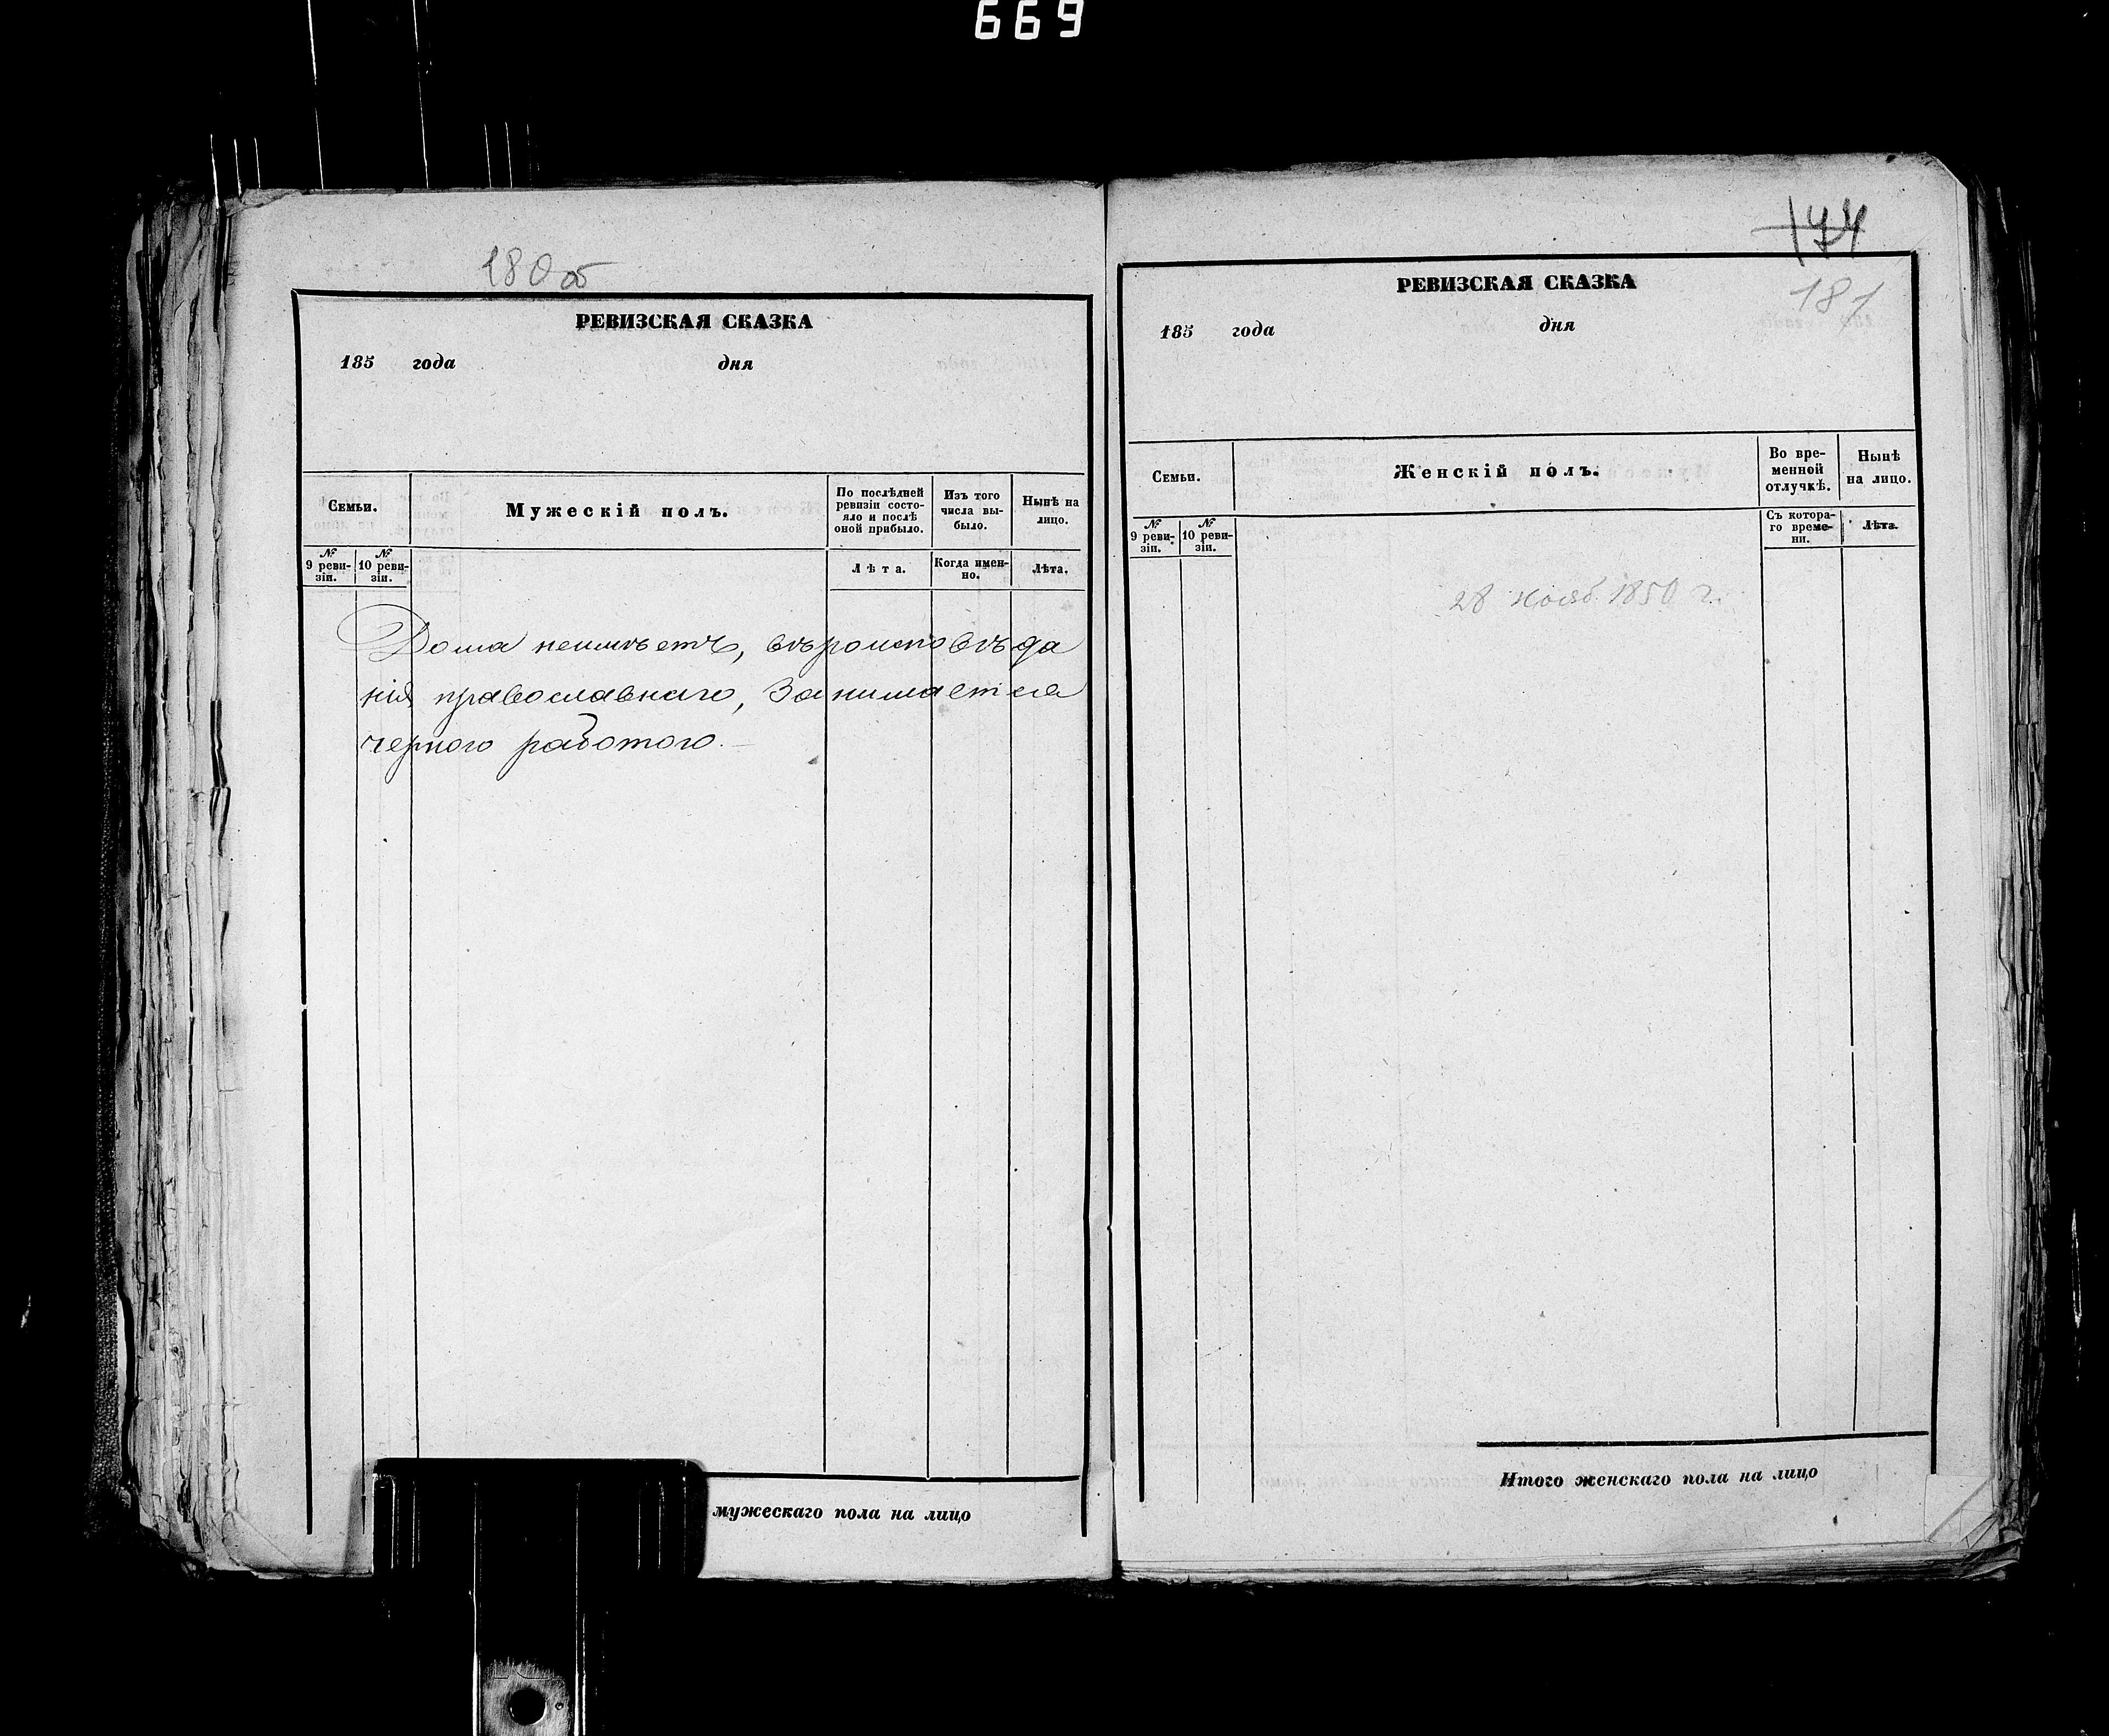 669
180 об
РЕВИЗСКАЯ СКАЗКА
185 года дня
Семьи.
Мужескій полъ.
По послѣдней ревизіи состо-
яло и послѣ
оной прибыло.
Изъ того
числа вы-
было.
Нынѣ на
лицо.
№
9 реви-
зіи.
№
10 реви-
зіи.
Лѣта.
Когда имен-
но.
Лѣта.
Дома неимѣетъ, вѣроисповѣда
нія православнаго, занимается
черного работого.
мужескаго пола на лицо
174
181
РЕВИЗСКАЯ СКАЗКА
185 года дня
Семьи.
Женскій полъ.
Во вре-
менной
отлучкѣ.
Нынѣ
на лицо.
№
9 реви-
зіи.
№
10 реви-
зіи.
Съ котора-
го време-
ни.
Лѣта.
28 нояб. 1850 г.
Итого женскаго пола на лицо